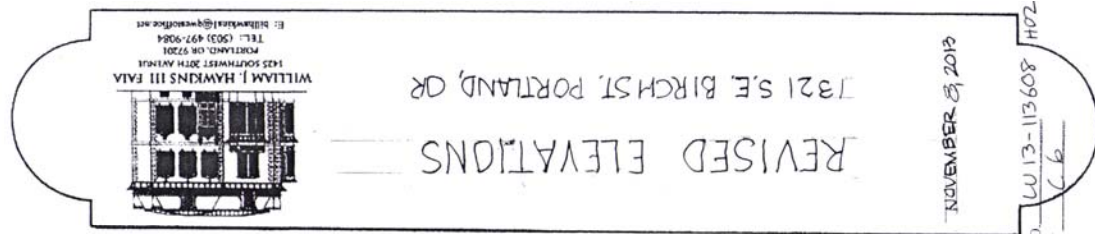 REVISED ELEVATIONS
1321 S.E. BIRCH ST. PORTLAND, OR
NOVEMBER 8, 2013
WILLIAM J. HAWKINS III FAIA
1425 SOUTHWEST 20TH AVENUE
PORTLAND, OR 97201
TEL: (503) 497-9084
E: billhawkins1@qwestoffice.net
LU 13-113608 HDZ
C.6